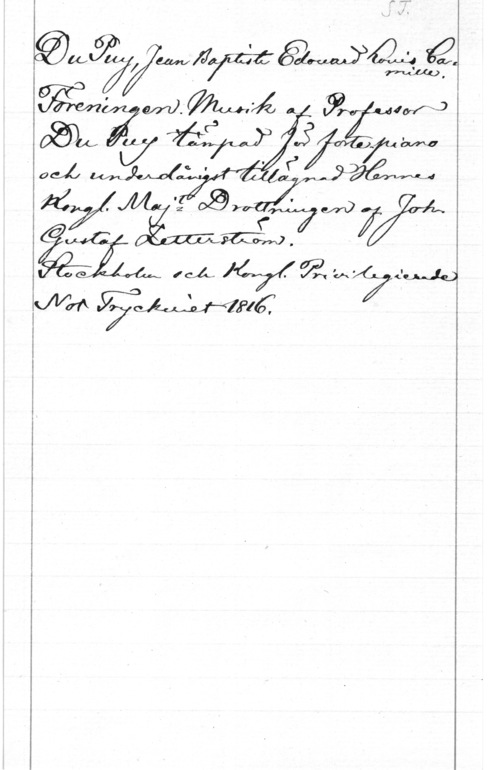 ST.
Du Puy, Jean Baptiste Edouard Louis Ca-
mille.
Föreningen. Musik af Professor
Du Puy lämpad för forte piano
och underdånigst tillägnad Hennes
Kongl. Maj:t Drottningen af Joh.
Gustaf Zetterström.
Stockholm och Kongl. Privilegierade
Not Tryckeriet 1816.